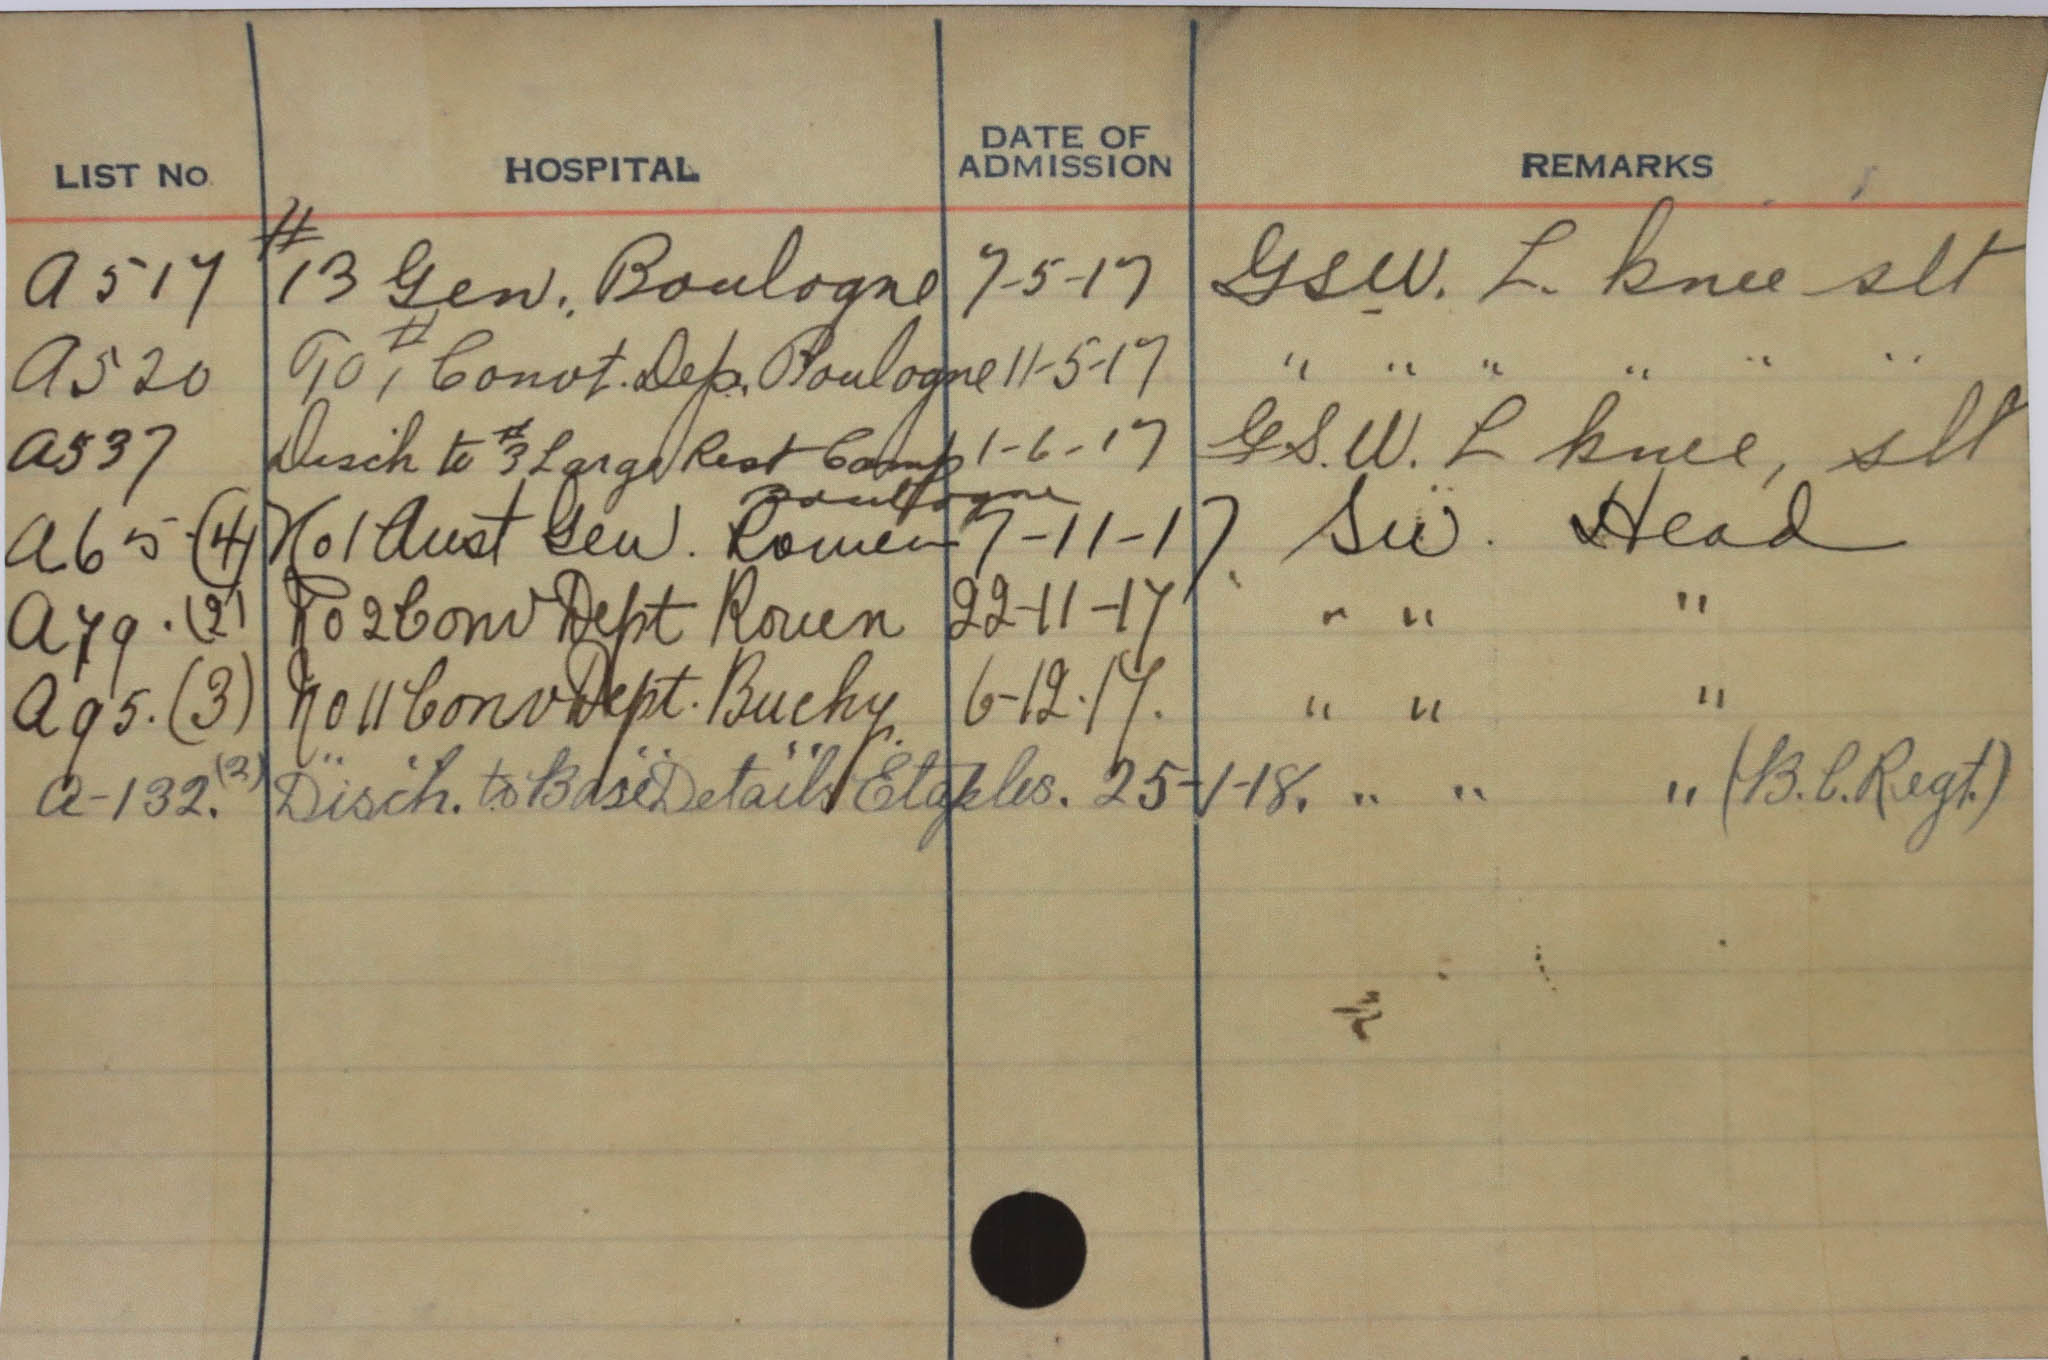 LIST No. HOSPITAL DATE OF ADMISSION REMARKS
A517 #13 Gen. Boulogne 7-5-17 GSW. L. knee slt
A520 To #1 Convt. Dep. Boulogne 11-5-17 " " " " " "
A537 Disch to #3 Large Rest Camp 1-6-17 G.S.W. L knee, slt
Boulogne
A65 (4) No 1 Aust Gen. Rouen 7-11-17. SW. Head
A79. (2) No 2 Conv Dept Rouen 22-11-17 " " "
A95. (3) No 11 Conv Dept. Buchy. 6-12-17. " " "
A-132. (3) Disch. to Base Details Etaples. 25-1-18. " " " (B.C. Regt.)